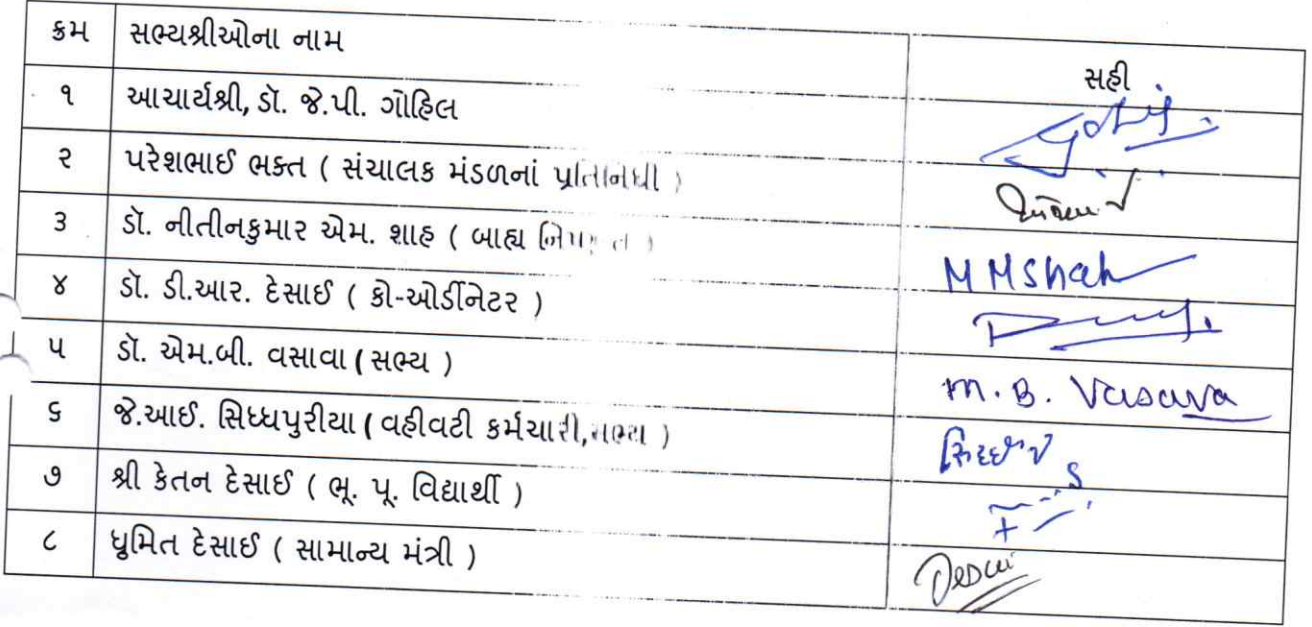 ક્રમ સભ્યશ્રીઓના નામ સહી
૧ આચાર્યશ્રી, ડૉ. જે.પી. ગોહિલ
૨ પરેશભાઈ ભક્ત ( સંચાલક મંડળનાં પ્રતિનિધી )
૩ ડૉ. નીતીનકુમાર એમ. શાહ ( બાહ્ય ) M M Shah
૪ ડૉ. ડી.આર. દેસાઈ ( કો-ઓર્ડીનેટર )
૫ ડૉ. એમ.બી. વસાવા ( સભ્ય ) M. B. Vasava
૬ જે.આઈ. સિધ્ધપુરીયા ( વહીવટી કર્મચારી, સભ્ય )
૭ શ્રી કેતન દેસાઈ ( ભૂ. પૂ. વિદ્યાર્થી )
૮ ધ્રુમિત દેસાઈ ( સામાન્ય મંત્રી ) Desai